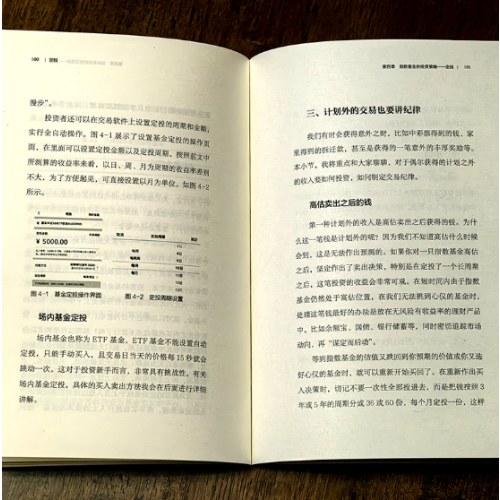 100 | 定投
漫步”。
投资者还可以在交易软件上设置定投的周期和金额,
实行全自动操作。图 4-1 展示了设置基金定投的操作页
面,在里面可以设置定投金额以及定投周期。按照前文中
所测算的收益率来看,以日、周、月为周期的收益率差别
不大,为了方便起见,可直接设置以月为单位,如图 4-2
所示。
¥ 5000.00
图 4-1 基金定投操作界面
图 4-2 定投周期设置
场内基金定投
场内基金也称为 ETF 基金。ETF 基金不能设置自动
定投,只能手动买入,且交易日当天的价格每 15 秒就会
跳动一次。这对于投资新手而言,非常具有挑战性。有关
场内基金定投,具体的买入卖出方法我会在后面进行详细
讲解。
第四章 指数基金的投资策略——定投 | 101
三、计划外的交易也要讲纪律
我们有时会获得意外之财,比如中彩票得到的钱、家
里得到的拆迁款,甚至是获得的一笔意外的丰厚奖励等。
本小节,我将重点和大家聊聊,对于偶尔获得的计划之外
的收入要如何投资,如何制定交易纪律。
高估卖出之后的钱
第一种计划外的收入是高估卖出之后获得的钱。为什
么这一笔钱是计划外的呢?因为我们不知道高估什么时候
会到,这是无法作出预测的。如果你对一只指数基金高估
之后,坚定作出了卖出决策,特别是在定投了一个长周期
之后,这笔投资的收益会非常可观。在短时间内由于指数
基金仍然处于高估位置,在我们无法挑到心仪的基金时,
处理这笔钱最好的办法是放在无风险有收益率的理财产品
中,比如余额宝、国债、银行储蓄等,同时密切追踪市场
动向,再“谋定而后动”。
等到指数基金的估值又跌回到你预期的价值或你又选
好心仪的基金时,就可以重新开始买回了。在重新作出买
入决策时,切记不要一次性全部投进去,而是把钱按照 3
年或 5 年的周期分成 36 或 60 份,每个月定投一份,这样